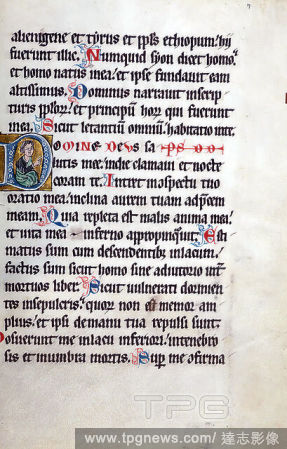 alienigene et tyrus et ppls ethiopum: hii
fuerunt illic. Numquid syon dicet homo:
et homo natus in ea: et ipse fundavit eam
altissimus. Dominus narrauit in scrip
turis pplor: et principu hor qui fuerunt
in ea. Sicut letantiu omniu: habitatio in te.
Domine deus sa
lutis mee: in die clamaui et nocte
coram te. Intret in cspectu tuo
oratio mea: inclina aurem tuam ad pcem
meam. Quia repleta est malis anima mea:
et uita mea inferno appropinquit. Esti
matus sum cum descendentib; in lacum:
factus sum sicut homo sine adiutorio int
mortuos liber. Sicut uulnerati dormien
tes in sepulcris: quor non es memor am
plius: et ipsi de manu tua repulsi sunt.
Posuerunt me in lacu inferiori: in tenebro
sis et in umbra mortis. Sup me ofirma
TPG
www.tpgnews.com/ 達志影像